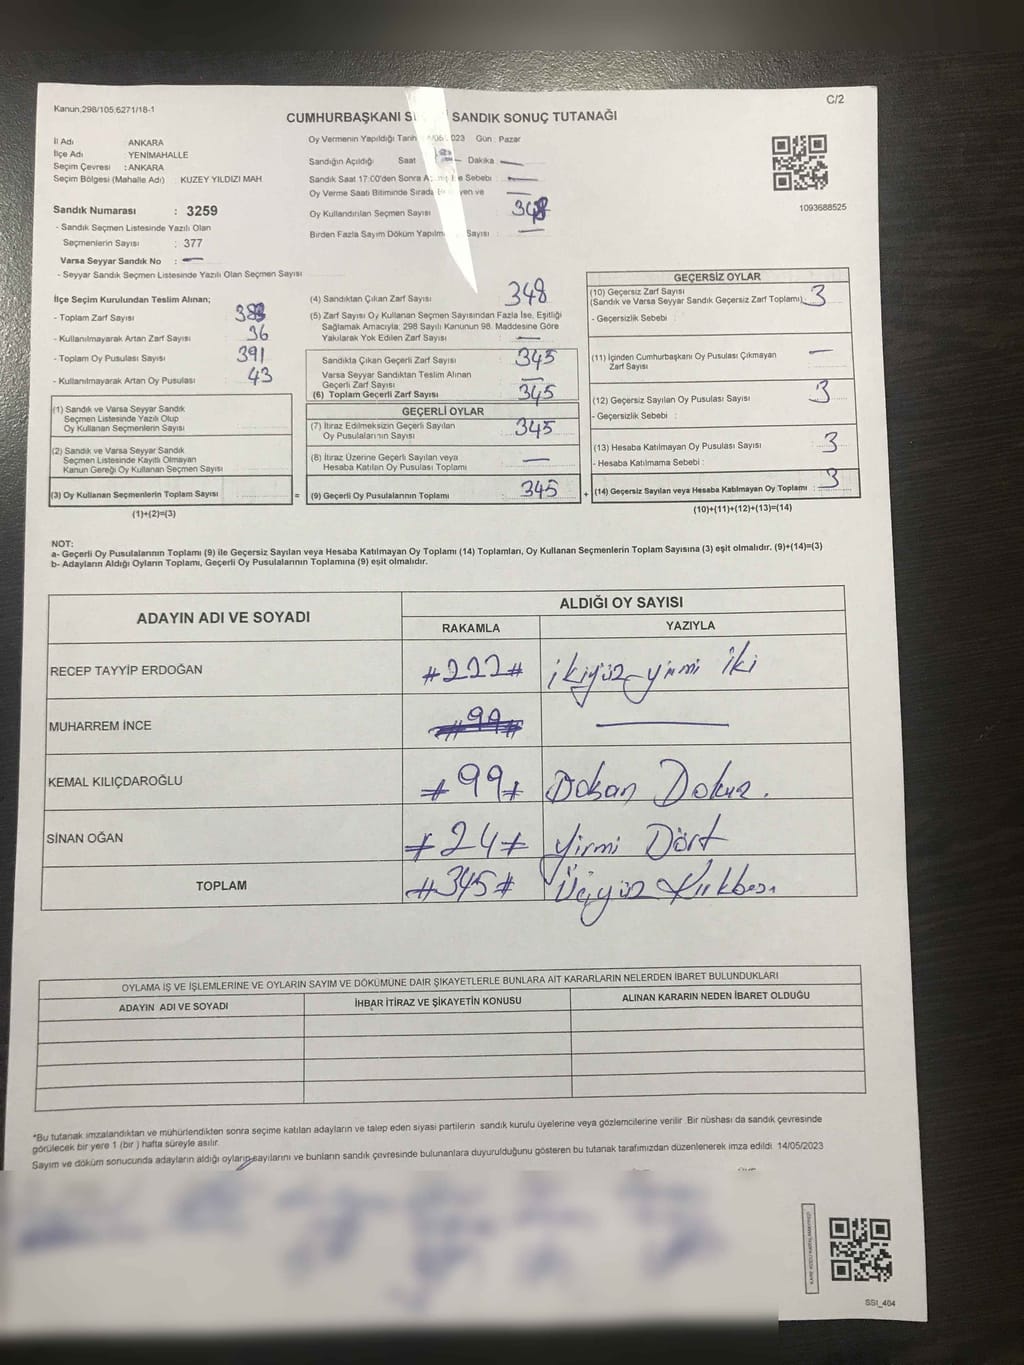 Kanun;298/105;6271/18-1
C/2
CUMHURBAŞKANI SANDIK SONUÇ TUTANAĞI
İl Adı ANKARA
İlçe Adı : YENİMAHALLE
Seçim Çevresi : ANKARA
Seçim Bölgesi (Mahalle Adı) : KUZEY YILDIZI MAH
Sandık Numarası : 3259
- Sandık Seçmen Listesinde Yazılı Olan
Seçmenlerin Sayısı : 377
Varsa Seyyar Sandık No : —
- Seyyar Sandık Listesinde Yazılı Olan Seçmen Sayısı
Oy Vermenin Yapıldığı 023 Gün : Pazar
Sandığın Açıldığı Saat — Dakika : —
Sandık Saat 17:00'den Sonra Sebebi : —
Oy Verme Saati Bitiminde Sırada yen ve —
Oy Kullandırılan Seçmen Sayısı 348
Birden Fazla Sayım Döküm Sayısı : —
1093688525
İlçe Seçim Kurulundan Teslim Alınan;
- Toplam Zarf Sayısı
- Kullanılmayarak Artan Zarf Sayısı 36
- Toplam Oy Pusulası Sayısı 391
- Kullanılmayarak Artan Oy Pusulası 43
(1) Sandık ve Varsa Seyyar Sandık
Seçmen Listesinde Yazılı Olup
Oy Kullanan Seçmenlerin Sayısı
(2) Sandık ve Varsa Seyyar Sandık
Seçmen Listesinde Kayıtlı Olmayan
Kanun Gereği Oy Kullanan Seçmen Sayısı
(3) Oy Kullanan Seçmenlerin Toplam Sayısı
(1)+(2)=(3)
(4) Sandıktan Çıkan Zarf Sayısı 348
(5) Zarf Sayısı Oy Kullanan Seçmen Sayısından Fazla İse, Eşitliği
Sağlamak Amacıyla; 298 Sayılı Kanunun 98. Maddesine Göre
Yakılarak Yok Edilen Zarf Sayısı —
Sandıkta Çıkan Geçerli Zarf Sayısı 345
Varsa Seyyar Sandıktan Teslim Alınan
Geçerli Zarf Sayısı —
(6) Toplam Geçerli Zarf Sayısı 345
GEÇERLİ OYLAR
(7) İtiraz Edilmeksizin Geçerli Sayılan
Oy Pusulalarının Sayısı 345
(8) İtiraz Üzerine Geçerli Sayılan veya
Hesaba Katılan Oy Pusulası Toplamı —
= (9) Geçerli Oy Pusulalarının Toplamı 345
GEÇERSİZ OYLAR
(10) Geçersiz Zarf Sayısı
(Sandık ve Varsa Seyyar Sandık Geçersiz Zarf Toplamı) 3
- Geçersizlik Sebebi :
(11) İçinden Cumhurbaşkanı Oy Pusulası Çıkmayan
Zarf Sayısı —
(12) Geçersiz Sayılan Oy Pusulası Sayısı 3
- Geçersizlik Sebebi :
(13) Hesaba Katılmayan Oy Pusulası Sayısı 3
- Hesaba Katılmama Sebebi :
+ (14) Geçersiz Sayılan veya Hesaba Katılmayan Oy Toplamı : 3
(10)+(11)+(12)+(13)=(14)
NOT:
a- Geçerli Oy Pusulalarının Toplamı (9) ile Geçersiz Sayılan veya Hesaba Katılmayan Oy Toplamı (14) Toplamları, Oy Kullanan Seçmenlerin Toplam Sayısına (3) eşit olmalıdır. (9)+(14)=(3)
b- Adayların Aldığı Oyların Toplamı, Geçerli Oy Pusulalarının Toplamına (9) eşit olmalıdır.
ADAYIN ADI VE SOYADI
ALDIĞI OY SAYISI
RAKAMLA YAZIYLA
RECEP TAYYİP ERDOĞAN #222# ikiyüz yirmi iki
MUHARREM İNCE #99# —
KEMAL KILIÇDAROĞLU #99# Doksan Dokuz.
SİNAN OĞAN #24# Yirmi Dört
TOPLAM #345# Üçyüz Kırkbeş
OYLAMA İŞ VE İŞLEMLERİNE VE OYLARIN SAYIM VE DÖKÜMÜNE DAİR ŞİKAYETLERLE BUNLARA AİT KARARLARIN NELERDEN İBARET BULUNDUKLARI
ADAYIN ADI VE SOYADI İHBAR İTİRAZ VE ŞİKAYETİN KONUSU ALINAN KARARIN NEDEN İBARET OLDUĞU
*Bu tutanak imzalandıktan ve mühürlendikten sonra seçime katılan adayların ve talep eden siyasi partilerin sandık kurulu üyelerine veya gözlemcilerine verilir. Bir nüshası da sandık çevresinde
görülecek bir yere 1 (bir) hafta süreyle asılır.
Sayım ve döküm sonucunda adayların aldığı oyların sayılarını ve bunların sandık çevresinde bulunanlara duyurulduğunu gösteren bu tutanak tarafımızdan düzenlenerek imza edildi. 14/05/2023
SSI_404